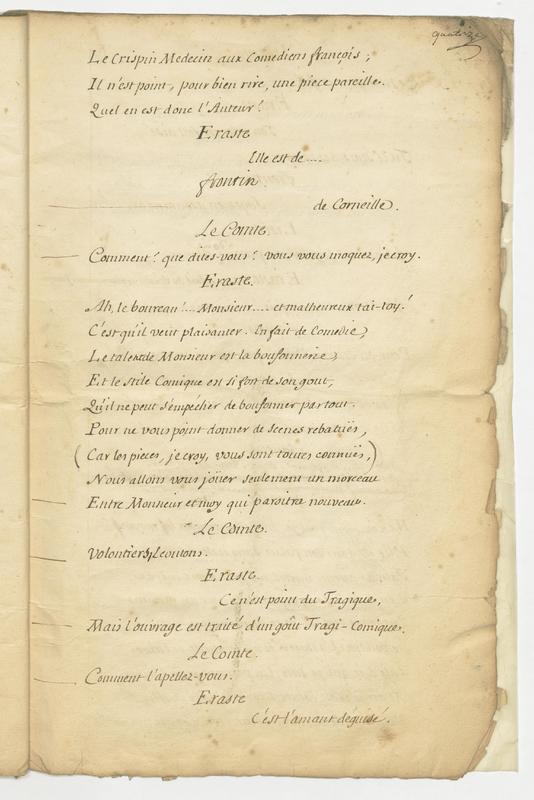 quatorze
Le Crispin Medecin aux Comediens françois;
Il n'est point, pour bien rire, une piece pareille.
Quel en est donc l'Auteur?
Eraste
Elle est de ....
frontin.
de Corneille.
Le Comte.
Comment? que dites-vous? vous vous moquez, je croy.
Eraste.
Ah, le boureau!... Monsieur.... et malheureux tai-toy!
C'est qu'il veut plaisanter. En fait de Comedie,
Le talent de Monsieur est la boufonnerie,
Et le stile Comique est si fort de son gout,
Qu'il ne peut s'empécher de boufonner par tout.
Pour ne vous point donner de scenes rebatuës,
(Car les pieces, je croy, vous sont toutes connuës,)
Nous allons vous joüer seulement un morceau
Entre Monsieur et moy qui paroitra nouveau.
Le Comte.
Volontiers, Ecoutons.
Eraste.
Ce n'est point du Tragique,
Mais l'ouvrage est traité d'un goût Tragi-Comique.
Le Comte.
Comment l'apellez-vous?
Eraste
C'est l'amant déguisé.